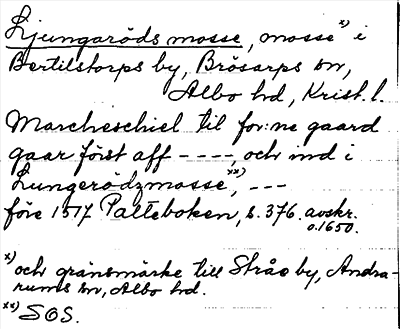 Ljungaröds mosse, mosse x) i
Bertilstorps by, Brösarps sn,
Albo hd, Krist. l.
Marcheschiel til for:ne gaard
gaar först aff ----, och ind i
Lungerödzmosse, xx) ---
före 1517 Palteboken, s. 376. avskr.
o. 1650.
x) och gränsmärke till Stråö by, Andra-
rums sn, Albo hd.
xx) SOS.